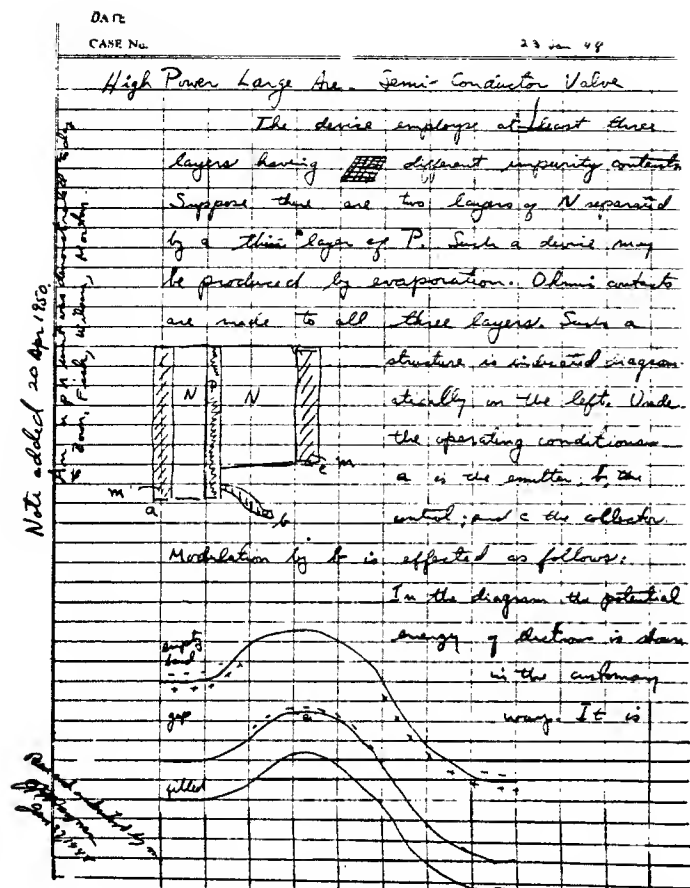 DATE
CASE No.
23 Jan 48
High Power Large Are. Semi-Conductor Valve
The device employs at least three
layers having different impurity contents.
Suppose there are two layers of N separated
by a thin layer of P. Such a device may
be produced by evaporation. Ohmic contacts
are made to all three layers. Such a
structure is indicated diagram
atically on the left. Under
the operating conditions
a is the emitter, b, the
control; and c the collector.
Modulation by b is effected as follows:
In the diagram the potential
energy of electrons is shown
in the customary
way. It is
N P N
m a b c m
empty band
gap
filled
Note added 20 Apr 1950.
An n p n unit was demonstrated today
to Bown, Fisk, Wilson, Morton.